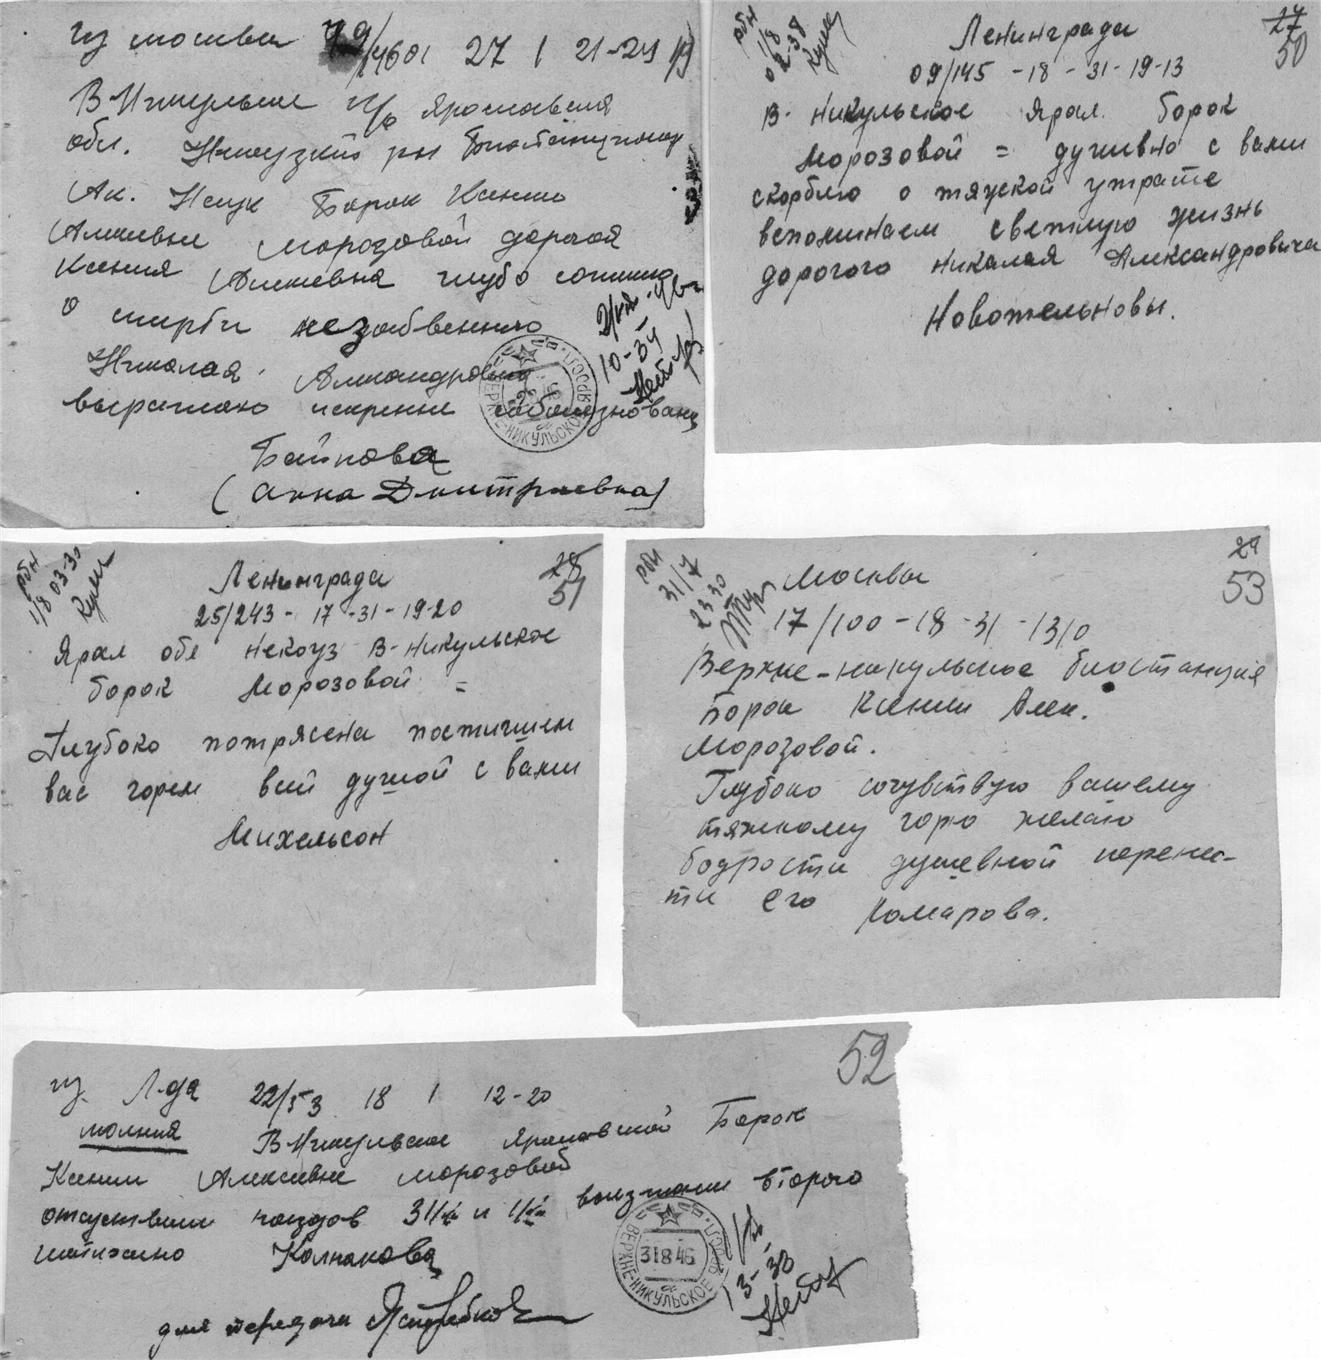 из москвы 79/4601 27 1 21-24
В-Никульское п/о Ярославская
обл. Некоузский рн
Ак. Наук Борок Ксении
Алксевне морозовой дорогая
Ксения Алксевна глубо
о смерти незабвенного
Николая Александровича
выражаю искренне соболезнование
Байкова
(Анна Дмитриевна)
10-54
ВЕРХНЕ-НИКУЛЬСКОЕ ЯР.
27
50
рбн
1/8
02-38
Ленинграда
09/145 - 18 - 31 - 19-13
в- Никульское Ярал. борок
Морозовой = душевно с вами
скорблю о тяжкой утрате
вспоминаем светлую жизнь
дорогого николая Александровича
Новотельновы.
рбн
1/8 03-30
28
51
Ленинграда
25/243 - 17 - 31 - 19-20
Ярал обл Некоуз В-Никульское
борок Морозовой =
Глубоко потрясена постигшем
вас горем всей душой с вами
Михельсон
рбн
31/7
23 30
29
53
Москвы
17/100 - 18 - 31 - 1310
Верхне-никульское биостанция
Борок Ксении Алек.
Морозовой.
Глубоко сочувствую вашему
тяжкому горю желаю
бодрости душевной перенес-
ти его Комарова.
52
из Л-да 22/53 18 1 12-20
молния В-Никульское Ярославской Борок
Ксении Алексевне морозовой
поездов и второго
Колпакова
13-30
ВЕРХНЕ-НИКУЛЬСКОЕ ЯР.
3 1 8 46
для передачи